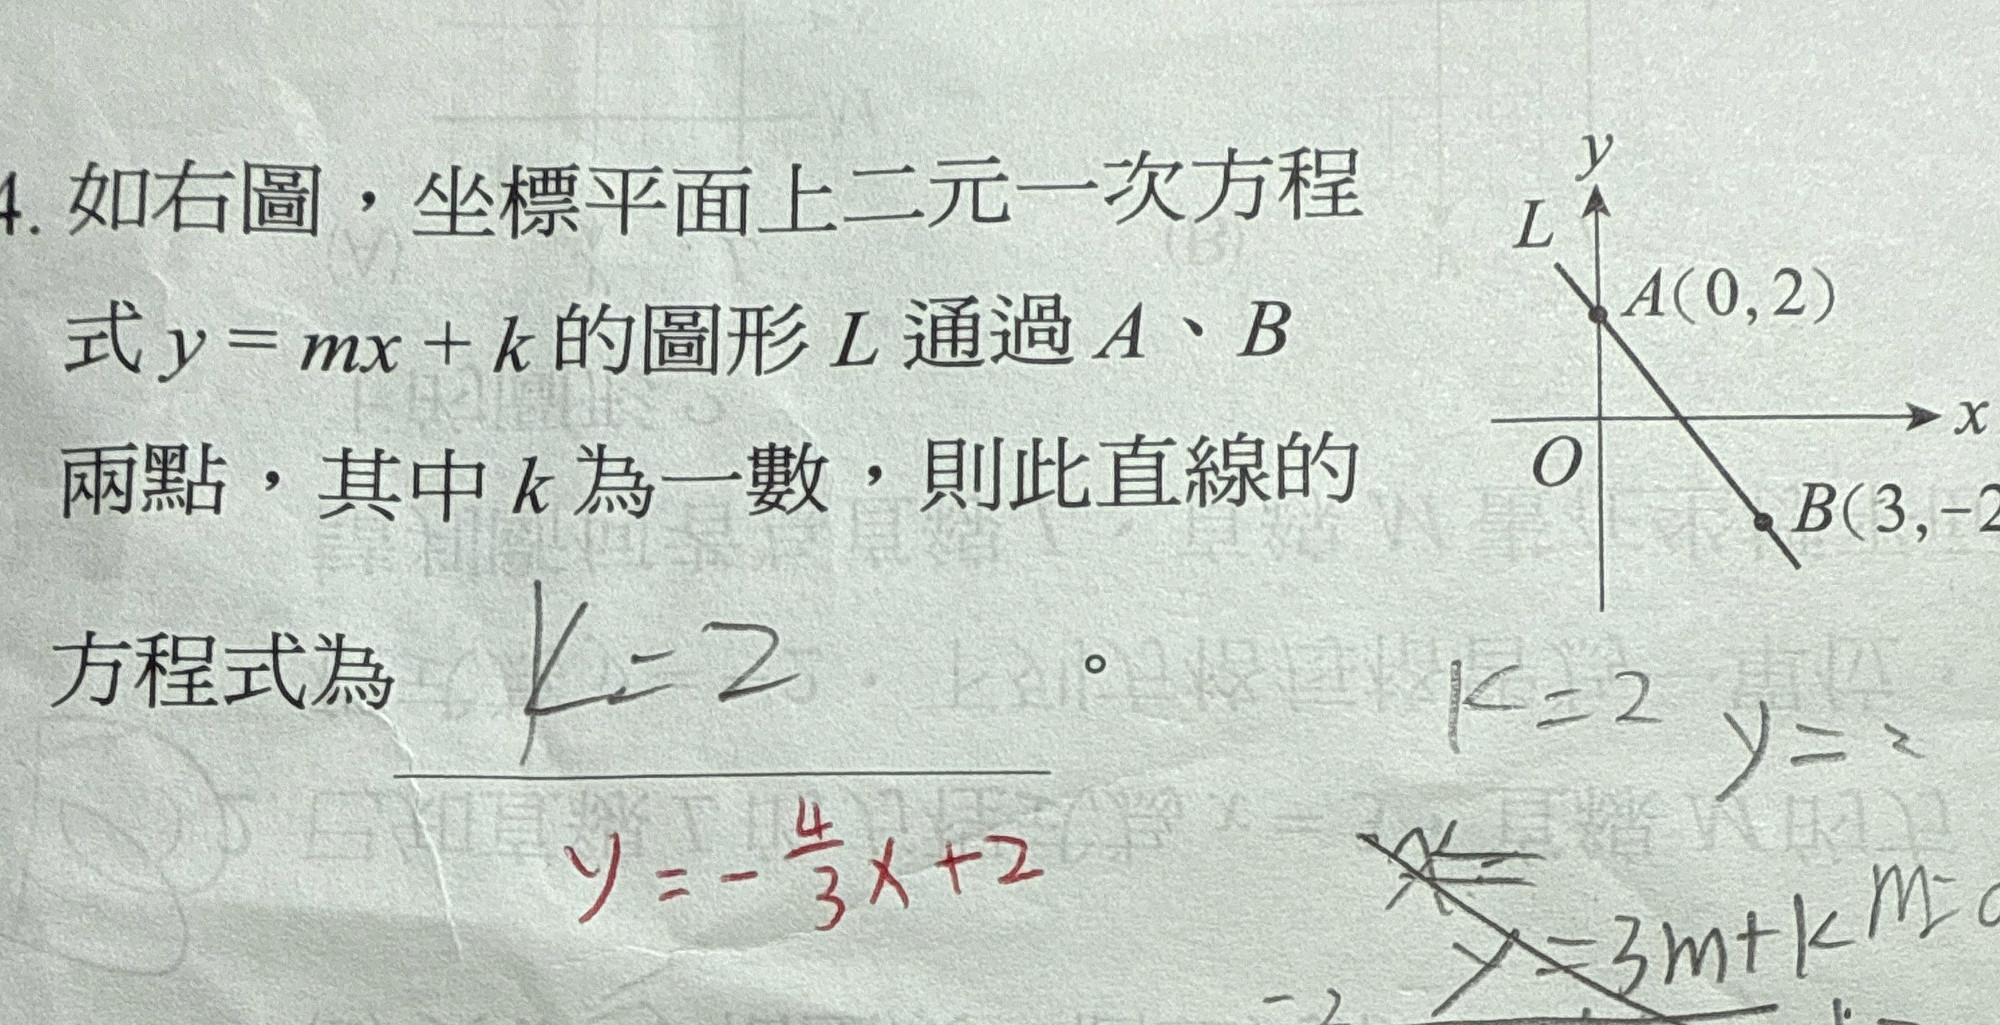 4. 如右圖，坐標平面上二元一次方程
式 y = mx + k 的圖形 L 通過 A、B
兩點，其中 k 為一數，則此直線的
方程式為 k=2 。
y = -4/3 x + 2
y
L
A(0, 2)
x
O
B(3, -2
k=2
y=
y=3m+k
m=